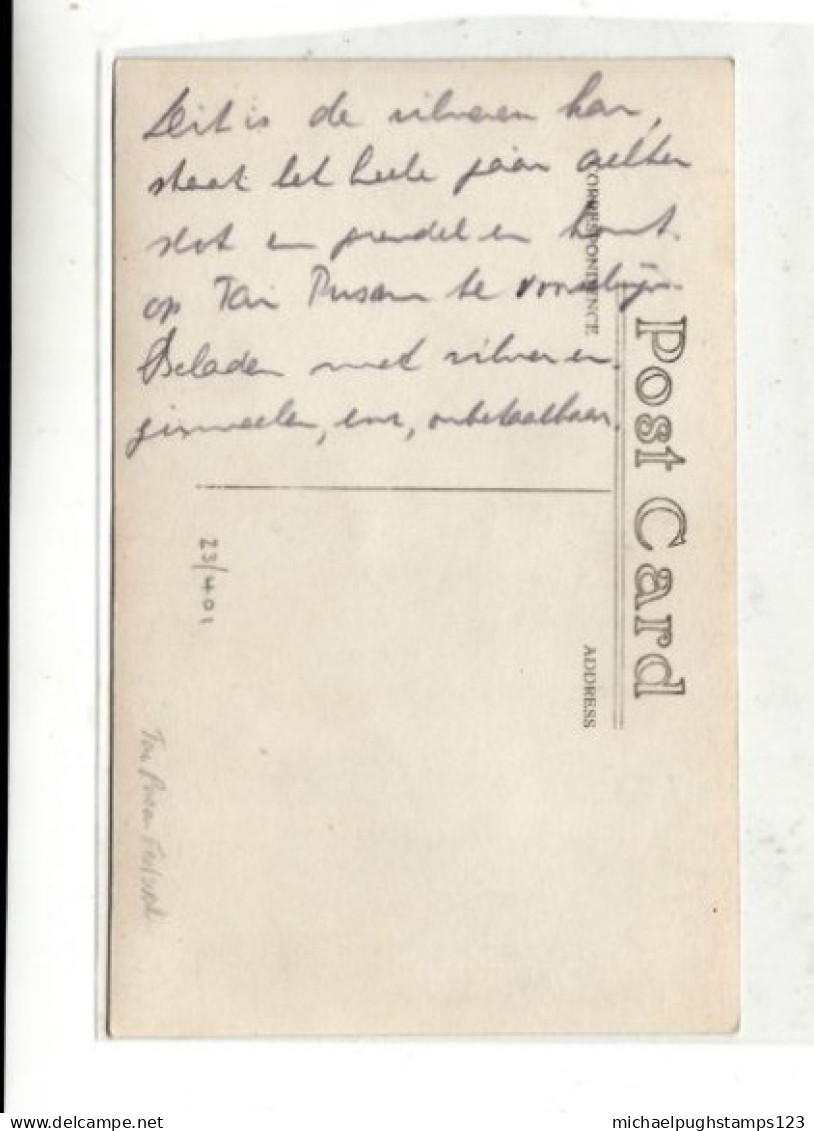 Dit is de zilveren kar,
staat het heele jaar achter
slot en grendel en komt
op Tai Pusam te voorschijn.
Beladen met zilver en
juweelen, enz, onbetaalbaar.
CORRESPONDENCE
Post Card
ADDRESS
23/401
Tai Pusam Festival
michaelpughstamps123